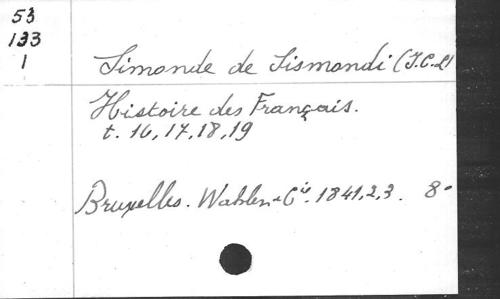 53
133
1
Simonde de Sismondi (J.C.L)
Histoire des Français.
t. 16, 17, 18, 19
Bruxelles. Wahlen & Cie. 1841, 2, 3. 8°